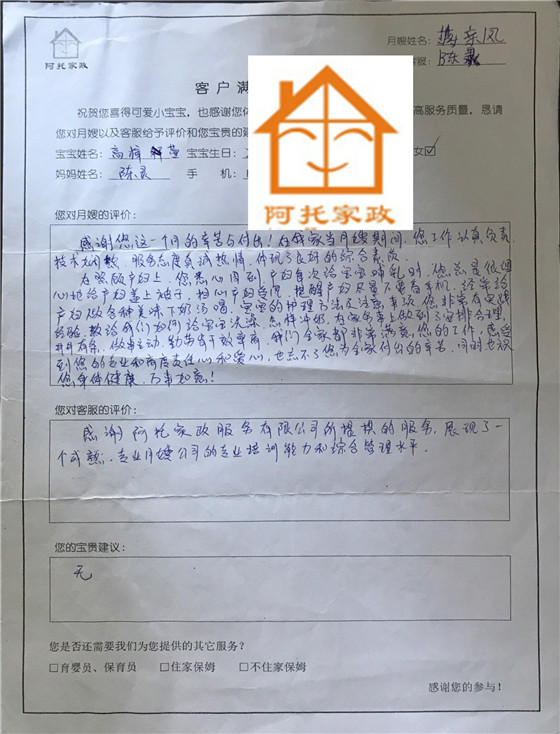 阿托家政
月嫂姓名：
客服：陈
客户满
阿托家政
祝贺您喜得可爱小宝宝，也感谢您
高服务质量，恳请
您对月嫂以及客服给予评价和您宝贵的建
宝宝姓名：高 宝宝生日：
女☑
妈妈姓名：陈 手 机：
您对月嫂的评价：
感谢您这一个月的辛苦与付出！在我家当月嫂期间，您工作认真负责，
技术娴熟，服务态度真诚热情，体现了良好的综合素质。
在照顾产妇上，您悉心周到，产妇每次给宝宝哺乳时，您总是很细
心地给产妇盖上被子，担心产妇受凉，提醒产妇尽量不要看手机，经常给
产妇做各种美味下奶汤喝，宝宝的护理方法及注意事项，您非常有实践
经验，教给我们如何给宝宝洗澡，怎样冲奶，在家务事上做到了安排合理，
井井有条，做事主动，勤劳肯干效率高，我们全家都非常满意您的工作，感受
到您的专业和高度责任心和爱心，也忘不了您为全家付出的辛苦，同时也祝
您身体健康，万事如意！
您对客服的评价：
感谢阿托家政服务有限公司所提供的服务，展现了一
个成熟、专业月嫂公司的专业培训能力和综合管理水平。
您的宝贵建议：
无
您是否还需要我们为您提供的其它服务？
□育婴员、保育员 □住家保姆 □不住家保姆
感谢您的参与！